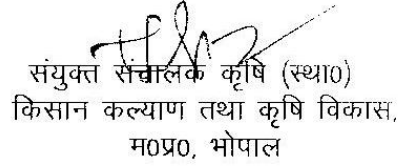 संयुक्त संचालक कृषि (स्था0)
किसान कल्याण तथा कृषि विकास,
म0प्र0, भोपाल